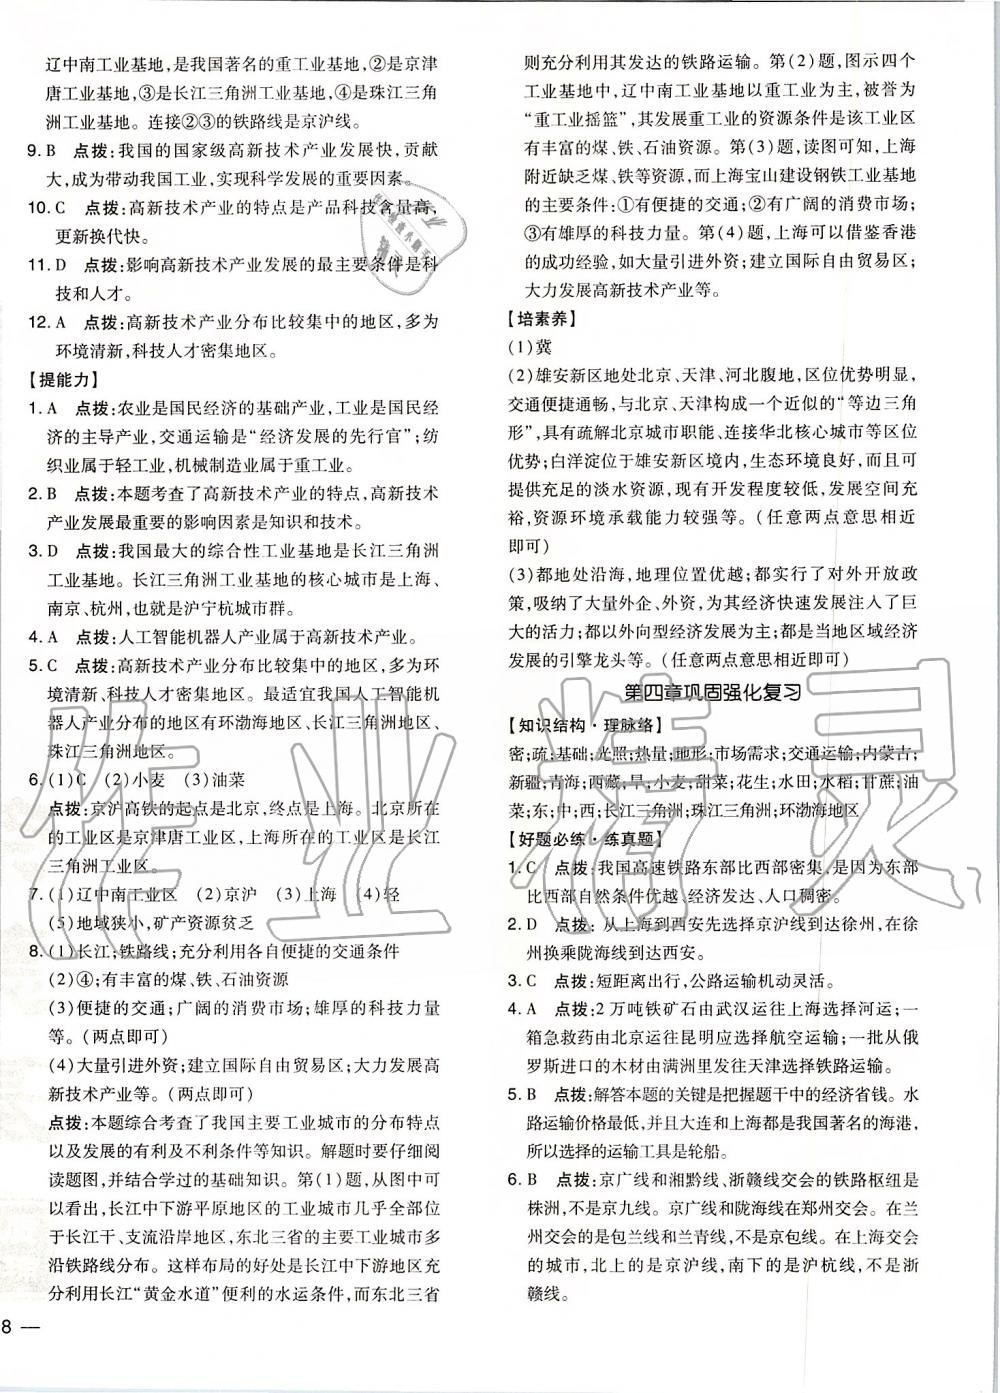 辽中南工业基地,是我国著名的重工业基地,②是京津
唐工业基地,③是长江三角洲工业基地,④是珠江三角
洲工业基地。连接②③的铁路线是京沪线。
9. B 点拨:我国的国家级高新技术产业发展快,贡献
大,成为带动我国工业,实现科学发展的重要因素。
10. C 点拨:高新技术产业的特点是产品科技含量高,
更新换代快。
11. D 点拨:影响高新技术产业发展的最主要条件是科
技和人才。
12. A 点拨:高新技术产业分布比较集中的地区,多为
环境清新,科技人才密集地区。
【提能力】
1. A 点拨:农业是国民经济的基础产业,工业是国民经
济的主导产业,交通运输是“经济发展的先行官”;纺
织业属于轻工业,机械制造业属于重工业。
2. B 点拨:本题考查了高新技术产业的特点,高新技术
产业发展最重要的影响因素是知识和技术。
3. D 点拨:我国最大的综合性工业基地是长江三角洲
工业基地。长江三角洲工业基地的核心城市是上海、
南京、杭州,也就是沪宁杭城市群。
4. A 点拨:人工智能机器人产业属于高新技术产业。
5. C 点拨:高新技术产业分布比较集中的地区,多为环
境清新、科技人才密集地区。最适宜我国人工智能机
器人产业分布的地区有环渤海地区、长江三角洲地区、
珠江三角洲地区。
6. (1)C (2)小麦 (3)油菜
点拨:京沪高铁的起点是北京,终点是上海。北京所在
的工业区是京津唐工业区,上海所在的工业区是长江
三角洲工业区。
7. (1)辽中南工业区 (2)京沪 (3)上海 (4)轻
(5)地域狭小,矿产资源贫乏
8. (1)长江;铁路线;充分利用各自便捷的交通条件
(2)④;有丰富的煤、铁、石油资源
(3)便捷的交通;广阔的消费市场;雄厚的科技力量
等。(两点即可)
(4)大量引进外资;建立国际自由贸易区;大力发展高
新技术产业等。(两点即可)
点拨:本题综合考查了我国主要工业城市的分布特点
以及发展的有利及不利条件等知识。解题时要仔细阅
读题图,并结合学过的基础知识。第(1)题,从图中可
以看出,长江中下游平原地区的工业城市几乎全部位
于长江干、支流沿岸地区,东北三省的主要工业城市多
沿铁路线分布。这样布局的好处是长江中下游地区充
分利用长江“黄金水道”便利的水运条件,而东北三省
8 —
则充分利用其发达的铁路运输。第(2)题,图示四个
工业基地中,辽中南工业基地以重工业为主,被誉为
“重工业摇篮”,其发展重工业的资源条件是该工业区
有丰富的煤、铁、石油资源。第(3)题,读图可知,上海
附近缺乏煤、铁等资源,而上海宝山建设钢铁工业基地
的主要条件有:①有便捷的交通;②有广阔的消费市场;
③有雄厚的科技力量。第(4)题,上海可以借鉴香港
的成功经验,如大量引进外资;建立国际自由贸易区;
大力发展高新技术产业等。
【培素养】
(1)冀
(2)雄安新区地处北京、天津、河北腹地,区位优势明显,
交通便捷通畅,与北京、天津构成一个近似的“等边三角
形”,具有疏解北京城市职能、连接华北核心城市等区位
优势;白洋淀位于雄安新区境内,生态环境良好,而且能
提供充足的淡水资源,现有开发程度较低,发展空间充
裕,资源环境承载能力较强等。(任意两点意思相近
即可)
(3)都地处沿海,地理位置优越;都实行了对外开放政
策,吸纳了大量外企、外资,为其经济快速发展注入了巨
大的活力;都以外向型经济发展为主;都是当地区域经济
发展的引擎龙头等。(任意两点意思相近即可)
第四章巩固强化复习
【知识结构·理脉络】
密;疏;基础;光照;热量;地形;市场需求;交通运输;内蒙古;
新疆;青海;西藏;旱;小麦;甜菜;花生;水田;水稻;甘蔗;油
菜;东;中;西;长江三角洲;珠江三角洲;环渤海地区
【好题必练·练真题】
1. C 点拨:我国高速铁路东部比西部密集,是因为东部
比西部自然条件优越、经济发达、人口稠密。
2. D 点拨:从上海到西安先选择京沪线到达徐州,在徐
州换乘陇海线到达西安。
3. C 点拨:短距离出行,公路运输机动灵活。
4. A 点拨:2万吨铁矿石由武汉运往上海选择河运;一
箱急救药由北京运往昆明应选择航空运输;一批从俄
罗斯进口的木材由满洲里发往天津选择铁路运输。
5. B 点拨:解答本题的关键是把握题干中的经济省钱。水
路运输价格最低,并且大连和上海都是我国著名的海港,
所以选择的运输工具是轮船。
6. B 点拨:京广线和湘黔线、浙赣线交会的铁路枢纽是
株洲,不是京九线。京广线和陇海线在郑州交会。在兰
州交会的是包兰线和兰青线,不是京包线。在上海交会
的城市,北上的是京沪线,南下的是沪杭线,不是浙
赣线。
作业精灵